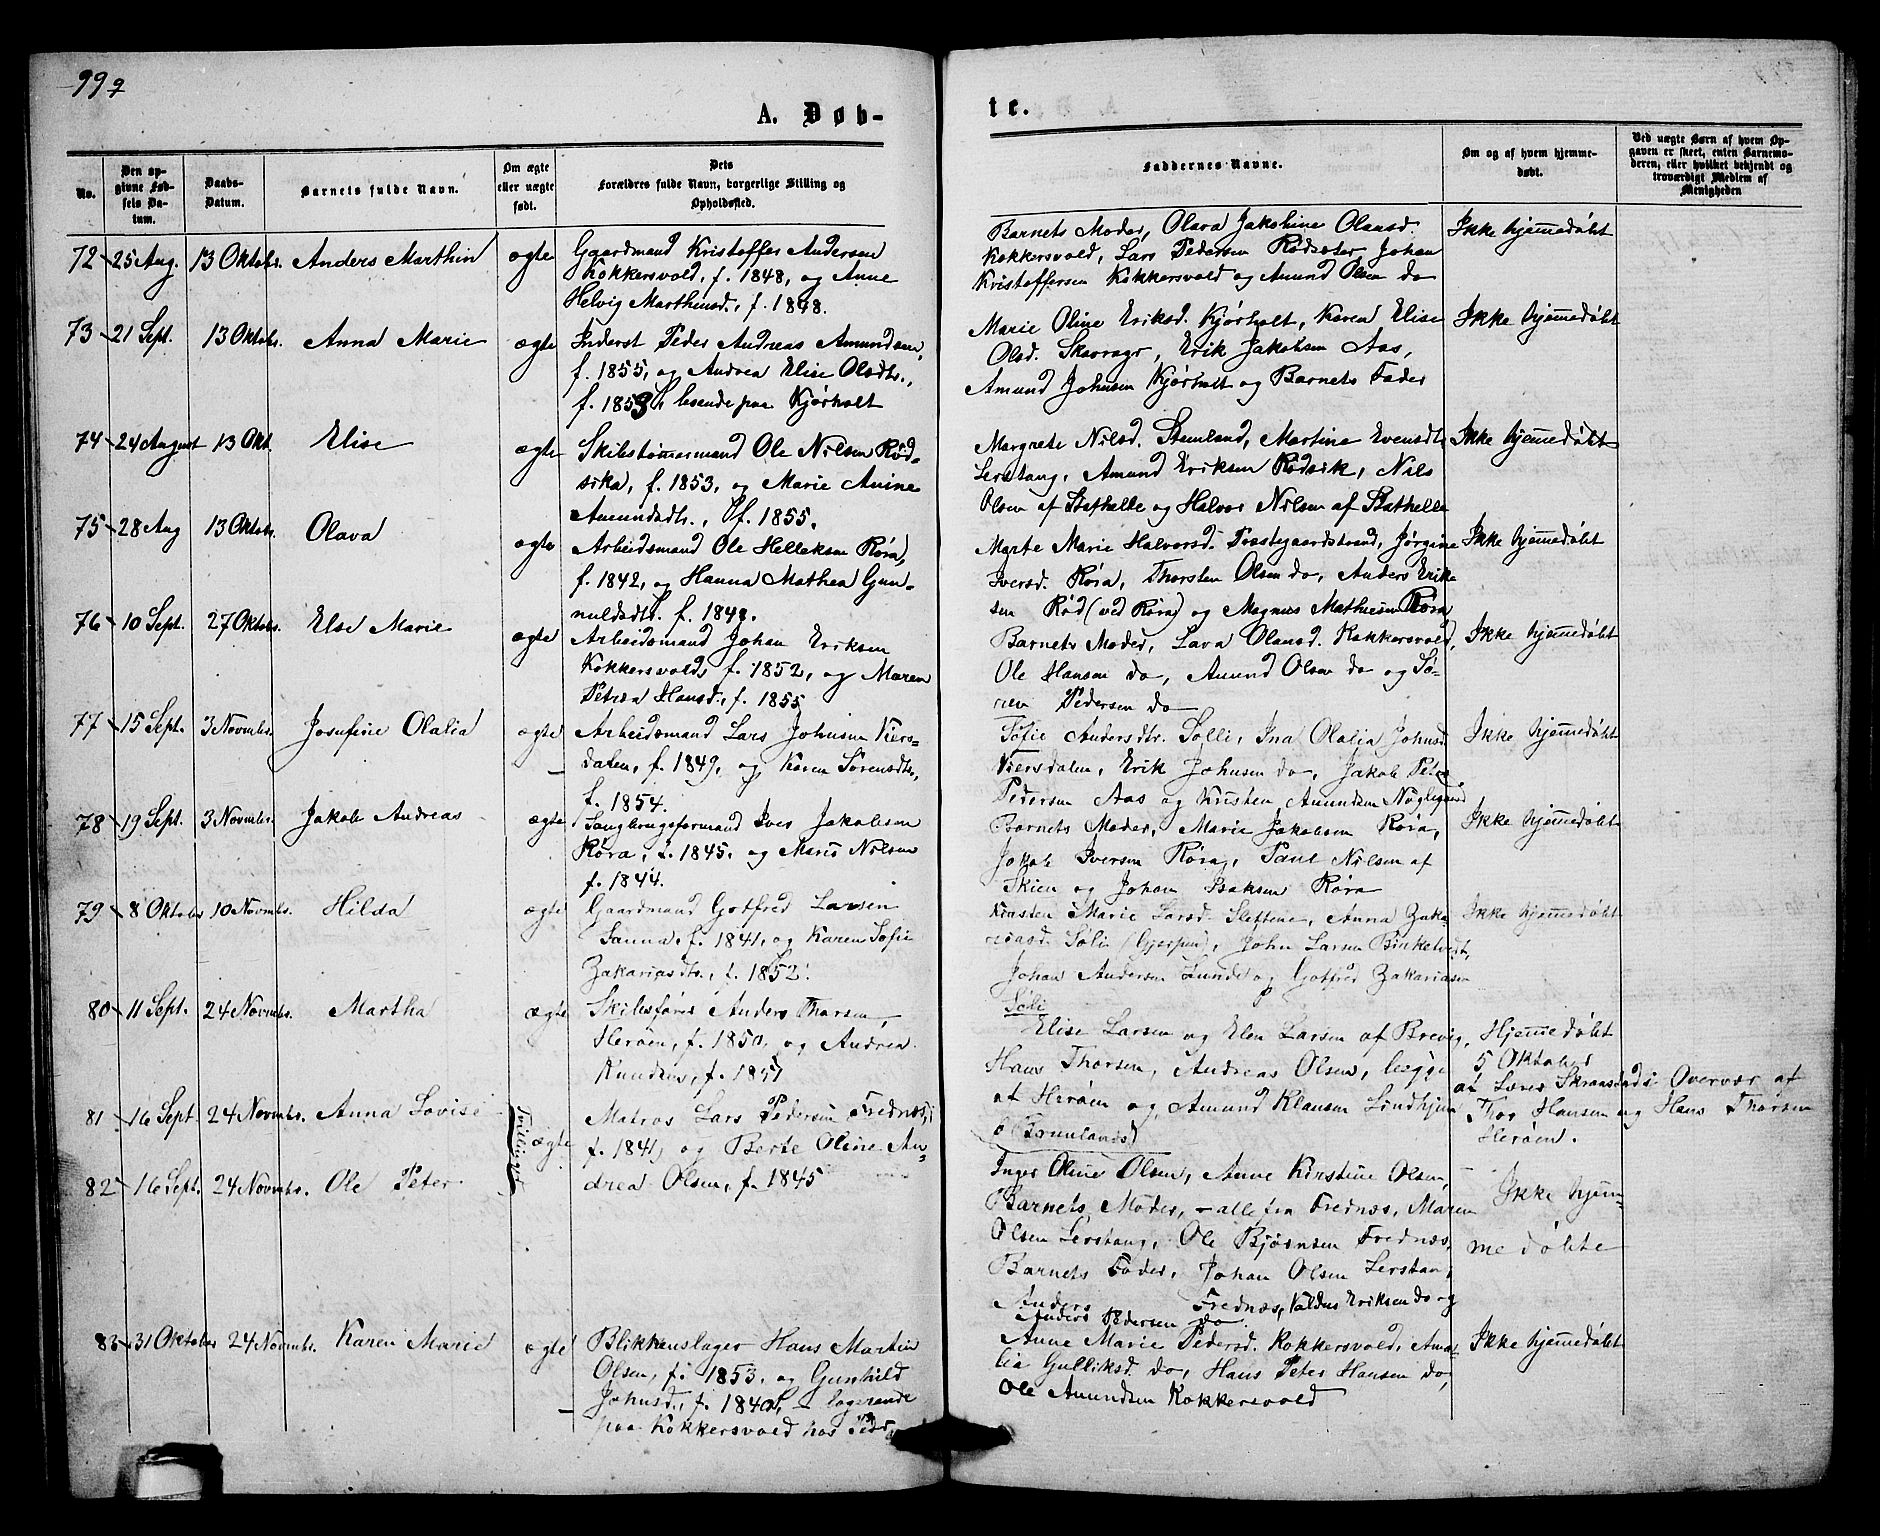 99 b
A. Døb-
te.
No.
Den op-
givne Fød-
sels Da-
tum.
Daabs-
Datum.
Barnets fulde Navn.
Om ægte
eller uægte
født.
Dets
Forældres fulde Navn, borgerlige Stilling og
Opholdssted.
Faddernes Navne.
Om og af hvem hjemme-
døbt.
Ved uægte Børn af hvem Op-
gaven er skeet, enten Barnemo-
deren, eller hvilket bekjendt og
troværdigt Medlem af
Menigheden
72 25 Aug. 13 Oktobr. Anders Marthin ægte Gaardmand Kristoffer Andersen
Kokkersvold, f. 1848, og Anne
Helvig Marthinsd., f. 1848.
Barnets Moder, Olava Jakobine Olausd.
Kokkersvold, Lars Pedersen Rødsæter, Johan
Kristoffersen Kokkersvold og Amund Olsen do
Ikke hjemmedøbt
73 21 Sept. 13 Oktobr. Anna Marie ægte Inderst Peder Andreas Amundsen,
f. 1855, og Andrea Elise Olsdtr.,
f. 1853, boende paa Kjørholt
Marie Oline Eriksd. Kjørholt, Karen Elise
Olsd. Skavrager, Erik Jakobsen Aas,
Amund Johnsen Kjørholt og Barnets Fader
Ikke hjemmedøbt
74 24 August 13 Okt. Elise ægte Skibstømmermand Ole Nilsen Rød-
svika, f. 1853, og Marie Anine
Amundsdtr., f. 1855.
Margrete Nilsd. Stamland, Martina Evensdtr.
Lerstang, Amund Eriksen Rødvik, Nils
Olsen af Stathelle og Halvor Nilsen af Stathelle
Ikke hjemmedøbt
75 28 Aug 13 Oktobr. Olava ægte Arbeidsmand Ole Helleksen Røra,
f. 1842, og Hanna Mathea Gun-
nulsdtr. f. 1848.
Marte Marie Halvorsd. Præstegaardstrand, Jørgine
Iversd. Røra, Thorsten Olsen do, Anders Erik-
sen Rød (ved Røra) og Magnus Mathisen Røra
Ikke hjemmedøbt
76 10 Sept. 27 Oktobr. Else Marie ægte Arbeidsmand Johan Eriksen
Kokkersvold, f. 1852, og Maren
Petrea Hansd., f. 1855
Barnets Moder, Lava Olausd. Kokkersvold,
Ole Hansen do, Amund Olsen do og Sø-
ren Pedersen do
Ikke hjemmedøbt
77 15 Sept. 3 Novmbr. Josefine Olalia ægte Arbeidsmand Lars Johnsen Viers-
dalen, f. 1849, og Karen Sørensdtr.,
f. 1854.
Sofie Andersdtr. Solli, Ina Olalia Johnsd.
Viersdalen, Erik Johnsen do, Jakob Peter
Pedersen Aas og Kristen Amundsen Nøglegaard
Ikke hjemmedøbt
78 19 Sept. 3 Novmbr. Jakob Andreas ægte Saugbrugsformand Iver Jakobsen
Røra, f. 1845, og Maris Nilsen
f. 1844.
Barnets Moder, Marie Jakobsen Røra,
Jakob Iversen Røra, Paul Nilsen af
Skien og Johan Isaksen Røra
Ikke hjemmedøbt
79 8 Oktobr 10 Novmbr. Hilda ægte Gaardmand Gotfred Larsen
Sanna, f. 1841, og Karen Sofie
Zakariasdtr., f. 1852.
Karen Marie Larsd. Slottene, Anna Zaka-
riasd. Søli (Gjerpen), John Larsen Birketvedt,
Johan Andersen Lunde og Gotfred Zakariasen
Søli
Ikke hjemmedøbt
80 11 Sept. 24 Novmbr. Martha ægte Skibsfører Anders Thorsen,
Herøen, f. 1850, og Andrea
Knudsen, f. 1851
Elise Larsen og Elen Larsen af Brevig,
Hans Thorsen, Andreas Olsen, begge
af Herøen og Amund Klausen Lindhjem
i Brunlanæs)
Hjemmedøbt
5 Oktober
af Lærer Skraastad i Overvær af
Thor Hansen og Hans Thorsen
Herøen.
81 16 Sept 24 Novmbr. Anna Lovise Tvillinger ægte Matros Lars Pedersen Frednæs,
f. 1841, og Berte Oline An-
drea Olsen, f. 1845
82 16 Sept. 24 Novmbr. Ole Peter
Inger Oline Olsen, Anne Kirstine Olsen,
Barnets Moder, – alle fra Frednæs, Maren
Olsen Lerstang, Ole Bjørnsen Frednæs,
Barnets Fader, Johan Olsen Lerstan,
Anders Frednæs, Valdus Eriksen do og
Anders Pedersen do
Ikke hjem-
medøbte
83 31 Oktober 24 Novmbr. Karen Marie ægte Blikkenslager Hans Martin
Olsen, f. 1853, og Gunhild
Johnsd., f. 1840, – logerende
paa Kokkersvold hos Peder
Anne Marie Pedersd. Kokkersvold, Ama-
lia Gulliksd. do, Hans Peter Hansen do,
Ole Amundsen Kokkersvold
Ikke hjemmedøbt